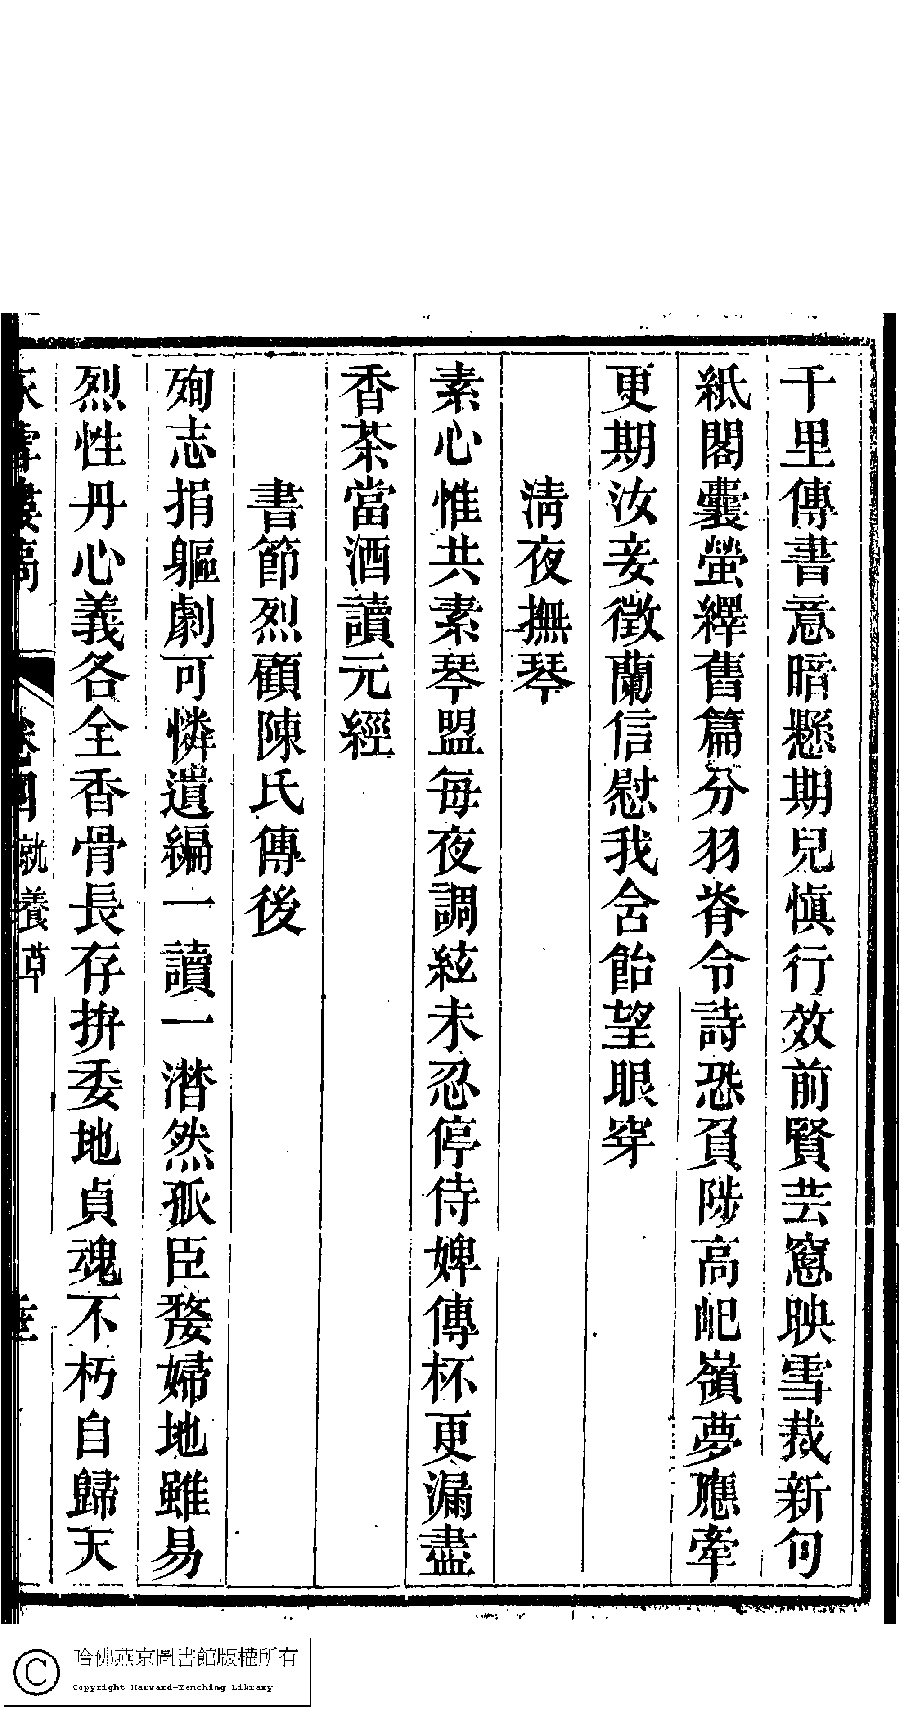 千里傳書意暗懸期兒愼行效前賢芸窻映雪裁新句
紙閣囊螢繹舊篇分羽脊令詩恐負陟高屺嶺夢應牽
更期汝妾徵蘭信慰我含飴望眼穿
淸夜撫琴
素心惟共素琴盟每夜調絃未忍停侍婢傳杯更漏盡
香茶當酒讀元經
書節烈顧陳氏傳後
殉志捐軀劇可憐遺編一讀一潸然孤臣嫠婦地雖易
烈性丹心義各全香骨長存拚委地貞魂不朽自歸天
卷四 就養草
哈佛燕京圖書館版權所有
Copyright Harvard-Yenching Library